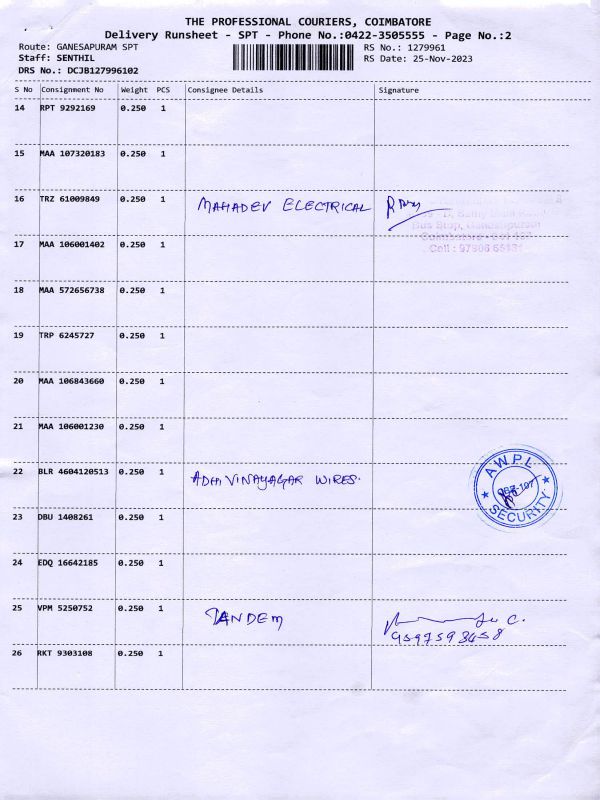 THE PROFESSIONAL COURIERS, COIMBATORE
Delivery Runsheet - SPT - Phone No.:0422-3505555 - Page No.:2
Route: GANESAPURAM SPT
RS No.: 1279961
Staff: SENTHIL
RS Date: 25-Nov-2023
DRS No.: DCJB127996102
S No Consignment No Weight PCS Consignee Details Signature
14 RPT 9292169 0.250 1
15 MAA 107320183 0.250 1
16 TRZ 61009849 0.250 1 MAHADEV ELECTRICAL
Bus Stop, Ganesapuram
17 MAA 106001402 0.250 1
18 MAA 572656738 0.250 1
19 TRP 6245727 0.250 1
20 MAA 106843660 0.250 1
21 MAA 106001230 0.250 1
22 BLR 4604120513 0.250 1 ADHI VINAYAGAR WIRES.
A.W.P.L.
SECURITY
23 DBU 1408261 0.250 1
24 EDQ 16642185 0.250 1
25 VPM 5250752 0.250 1 TANDEM
9597593458
26 RKT 9303108 0.250 1